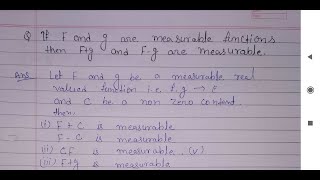 Q If F and g are measurable functions
then F+g and F-g are measurable.
Ans. Let F and g be a measurable real
valued function i.e. f.g → E
and C be a non zero
then.
(i) F + C is measurable
F - C is measurable
(ii) CF is measurable. (V)
(iii) F+g is measurable